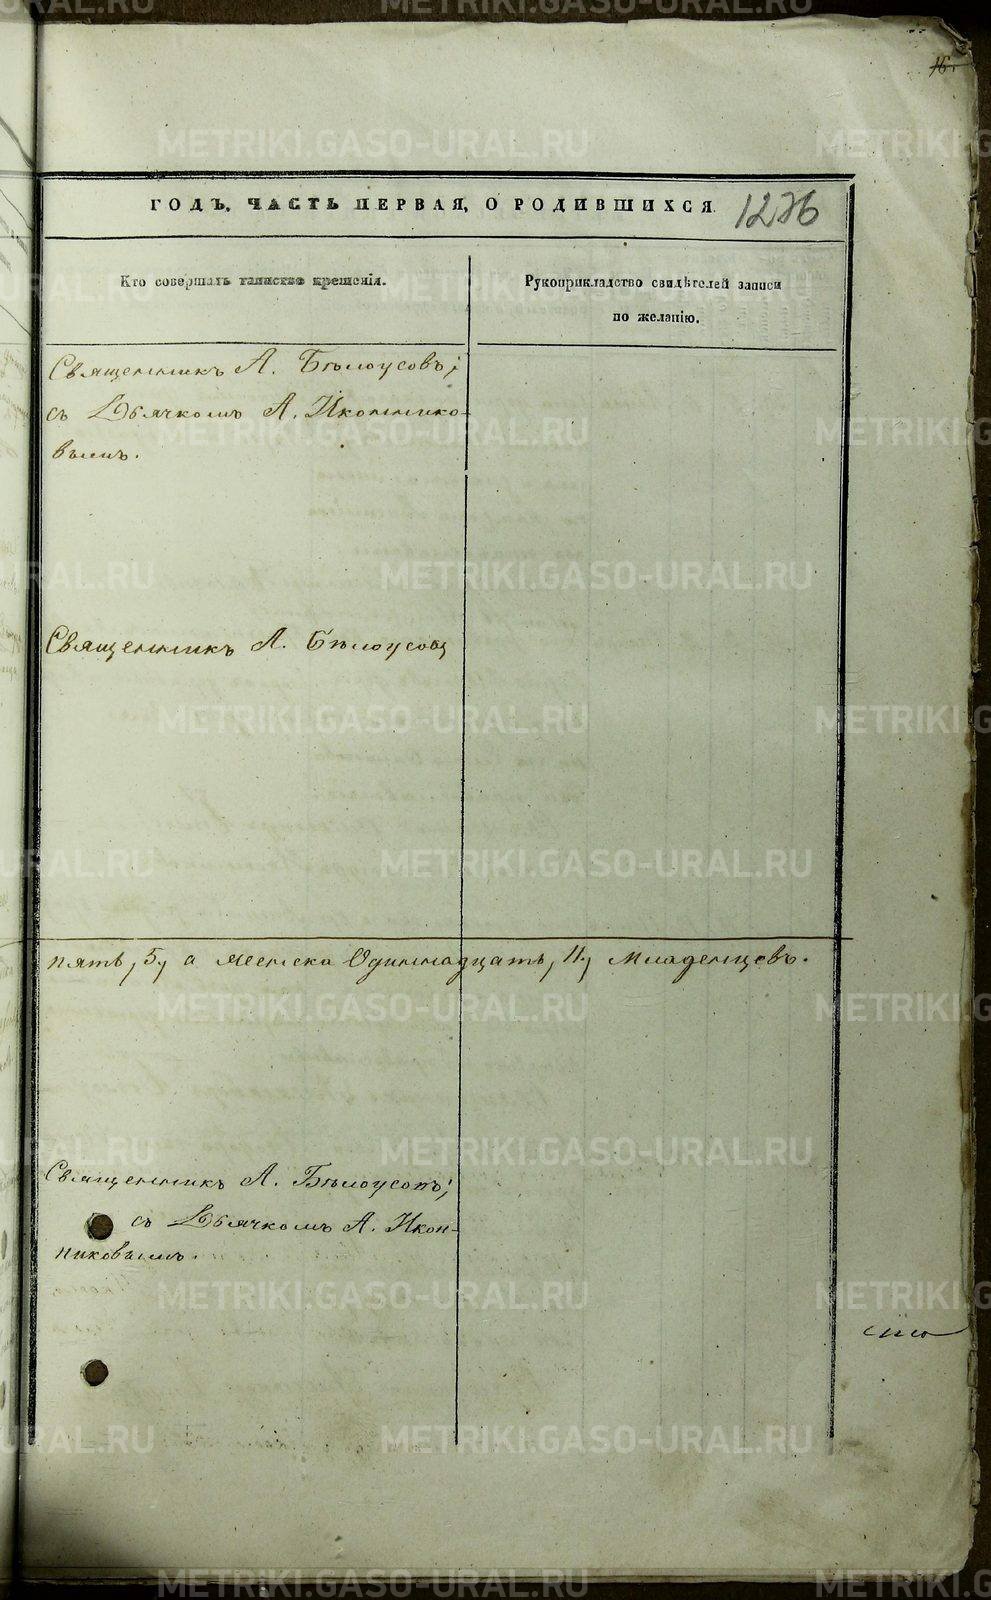 16.
ГОДЪ, ЧАСТЬ ПЕРВАЯ, О РОДИВШИХСЯ. 1226
Кто совершалъ таинство крещенія.
Рукоприкладство свидѣтелей записи
по желанію.
Священникъ А. Бѣлоусовъ;
съ Дьячкомъ А. Иконнико-
вымъ.
Священникъ А. Бѣлоусовъ
пять, 5, а женска Одиннадцать, 11, Младенцевъ.
Священникъ А. Бѣлоусовъ;
съ Дьячкомъ А. Икон-
никовымъ.
METRIKI.GASO-URAL.RU